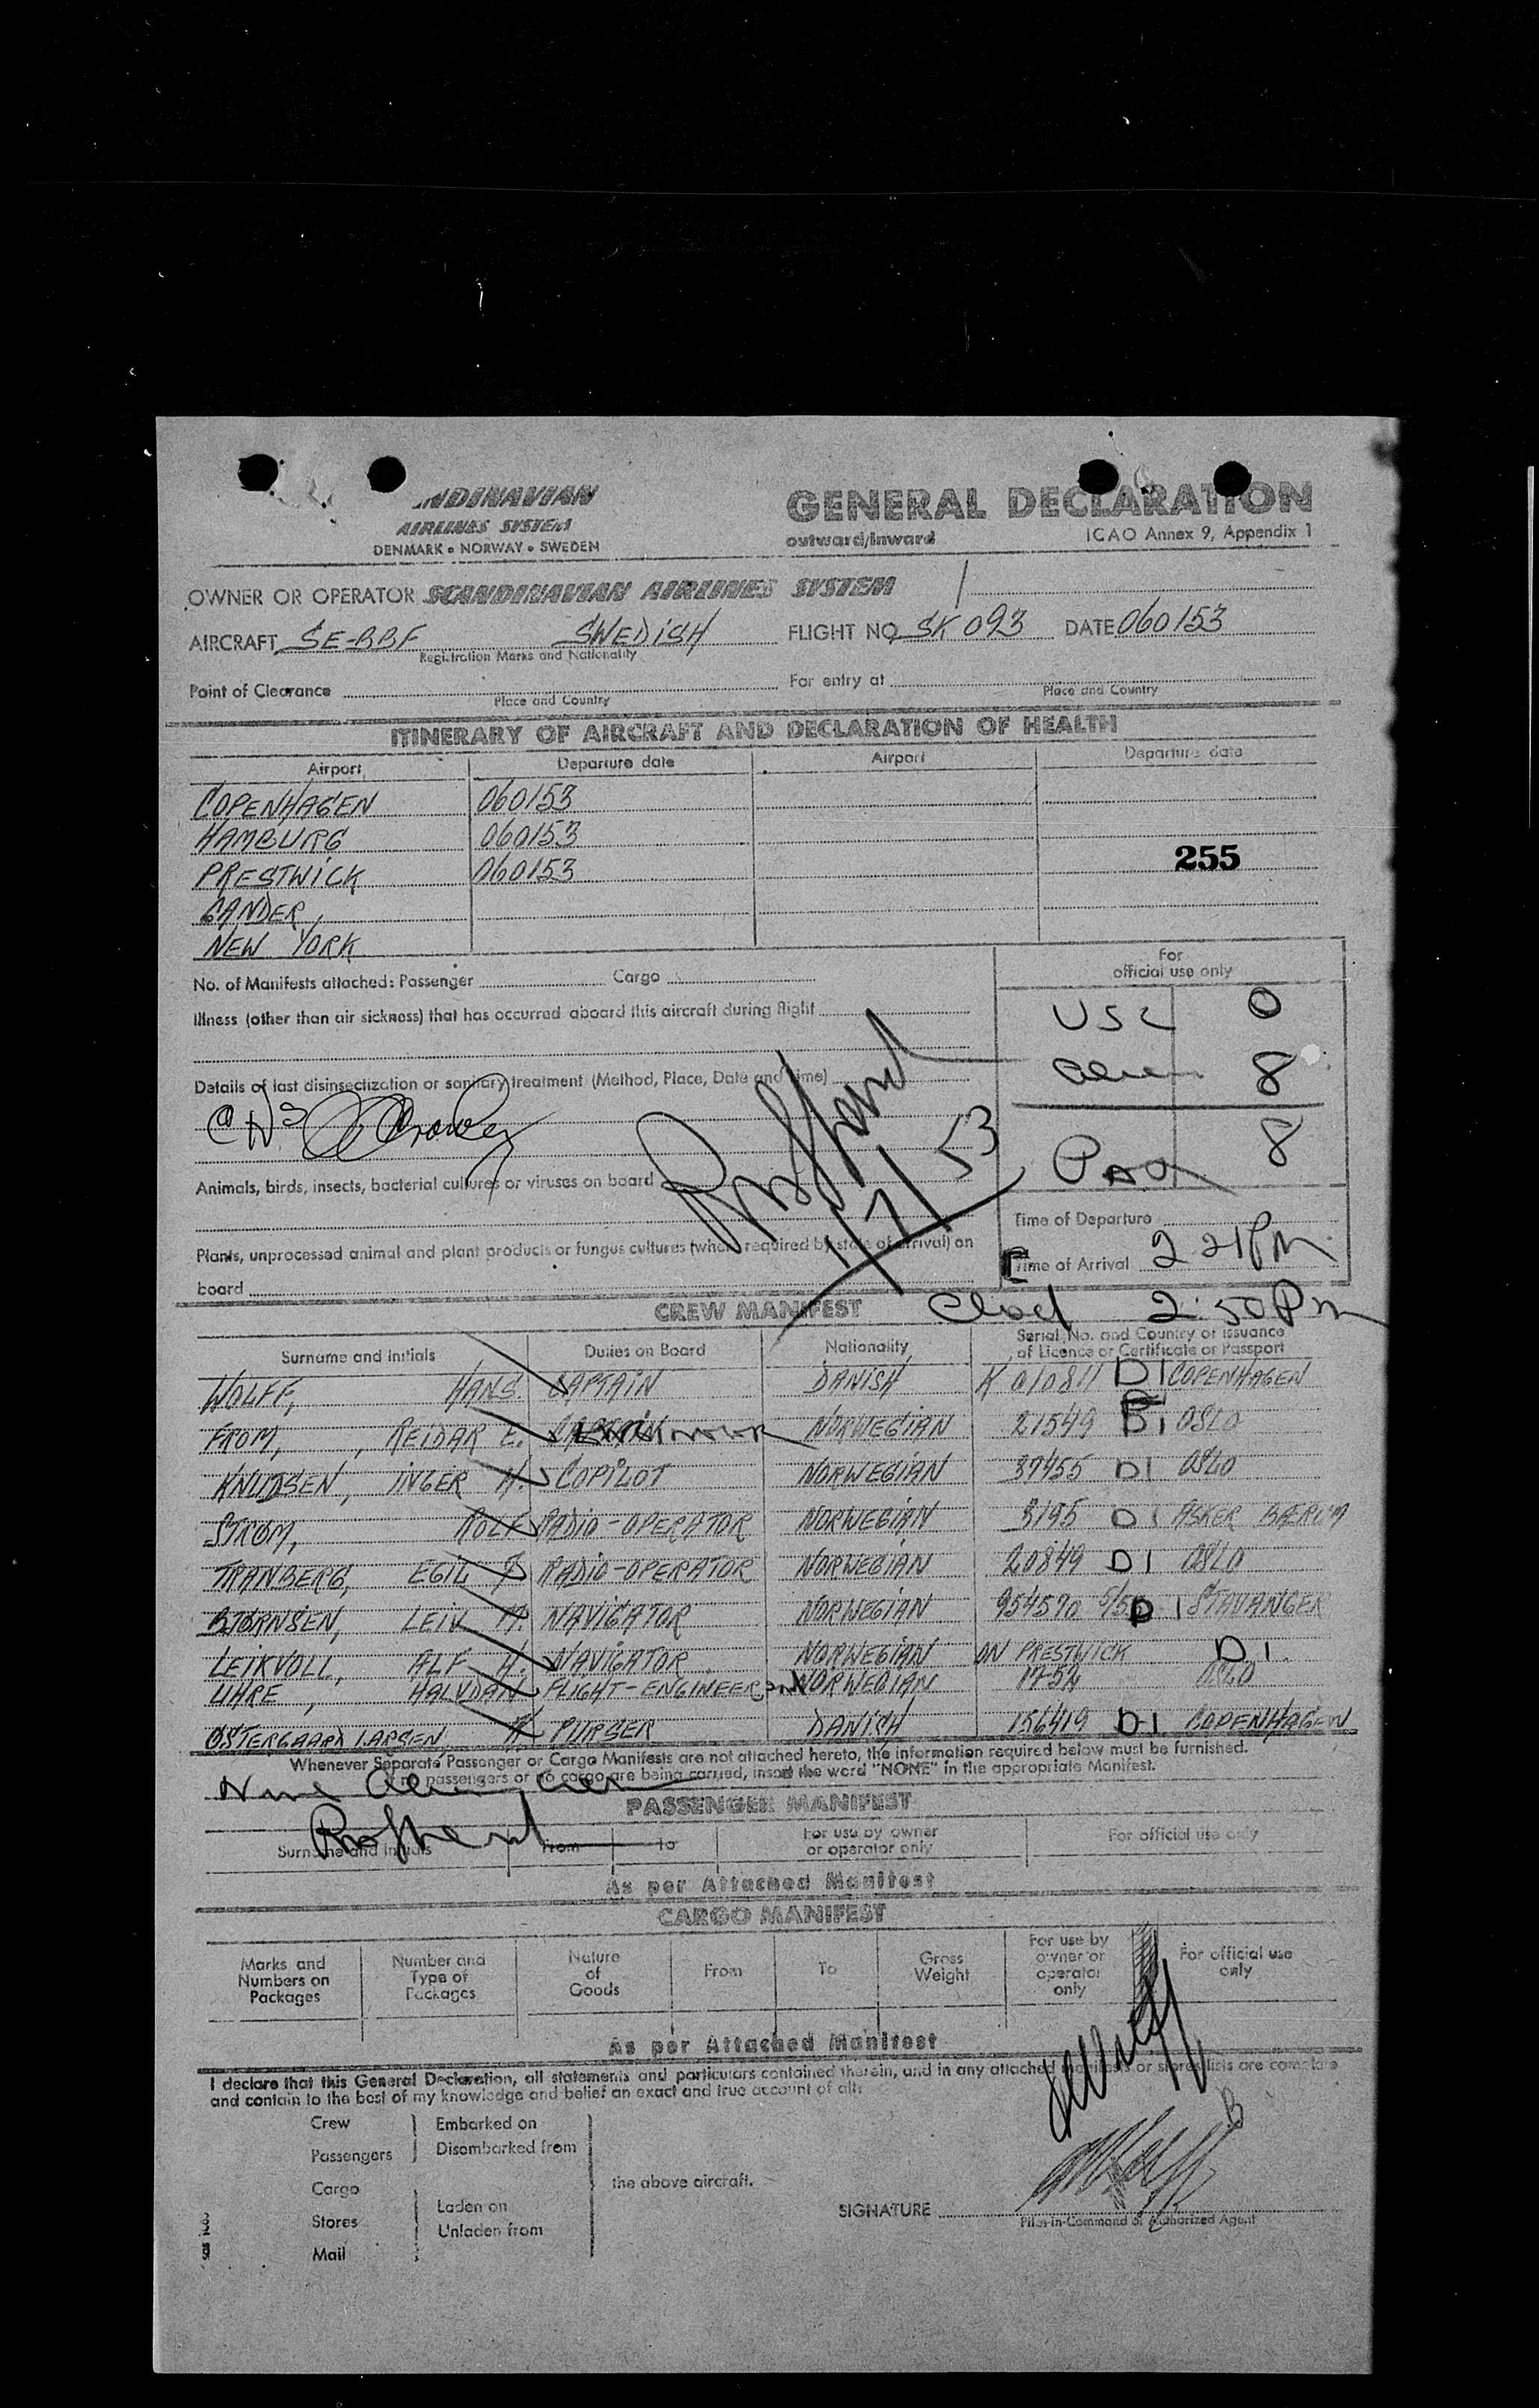 NDINAVIAN
AIRLINES SYSTEM
DENMARK • NORWAY • SWEDEN
GENERAL DECLARATION
outward/inward
ICAO Annex 9, Appendix 1
OWNER OR OPERATOR SCANDINAVIAN AIRLINES SYSTEM
AIRCRAFT SE-BBF SWEDISH FLIGHT NO SK 093 DATE 060153
Registration Marks and Nationality
Point of Clearance For entry at
Place and Country Place and Country
ITINERARY OF AIRCRAFT AND DECLARATION OF HEALTH
Airport Departure date Airport Departure date
COPENHAGEN 060153
HAMBURG 060153
PRESTWICK 060153 255
GANDER
NEW YORK
For
official use only
No. of Manifests attached: Passenger Cargo
Illness (other than air sickness) that has occurred aboard this aircraft during flight
USC 0
Alien 8
8
Pax
Details of last disinsectization or sanitary treatment (Method, Place, Date and Time)
1/7/53
Animals, birds, insects, bacterial cultures or viruses on board
Time of Departure
Plants, unprocessed animal and plant products or fungus cultures (when required by state of arrival) on
board
Time of Arrival 2 21 PM
CREW MANIFEST
2:50 Pm
Surname and Initials Duties on Board Nationality Serial No. and Country of Issuance
of Licence or Certificate or Passport
WOLFF, HANS. CAPTAIN DANISH K 010811 D1 COPENHAGEN
FROM, REIDAR E. NORWEGIAN 21549 D1 OSLO
KNUDSEN, INGER H. COPILOT NORWEGIAN 37455 D1 OSLO
STRØM, ROLF RADIO-OPERATOR NORWEGIAN 3195 D1 ASKER BÆRUM
TRANBERG, EGIL RADIO-OPERATOR NORWEGIAN 20849 D1 OSLO
BJØRNSEN, LEIV M. NAVIGATOR NORWEGIAN 954570 D1 STAVANGER
LEIKVOLL, ALF H. NAVIGATOR NORWEGIAN ON PRESTWICK D1
UHRE, HALVDAN FLIGHT-ENGINEER NORWEGIAN 1752 OSLO
ØSTERGAARD LARSEN, PURSER DANISH 156419 D1 COPENHAGEN
Whenever Separate Passenger or Cargo Manifests are not attached hereto, the information required below must be furnished.
passengers or no cargo are being carried, insert the word "NONE" in the appropriate Manifest.
PASSENGER MANIFEST
Surname and Initials From To For use by owner
or operator only For official use only
As per Attached Manifest
CARGO MANIFEST
Marks and
Numbers on
Packages
Number and
Type of
Packages
Nature
of
Goods
From
To
Gross
Weight
For use by
owner or
operator
only
For official use
only
As per Attached Manifest
I declare that this General Declaration, all statements and particulars contained therein, and in any attached manifests or stores lists are complete
and contain to the best of my knowledge and belief an exact and true account of all:
Crew
Passengers
Cargo
Stores
Mail
Embarked on
Disembarked from
Laden on
Unladen from
the above aircraft.
SIGNATURE
Pilot-in-Command or Authorized Agent